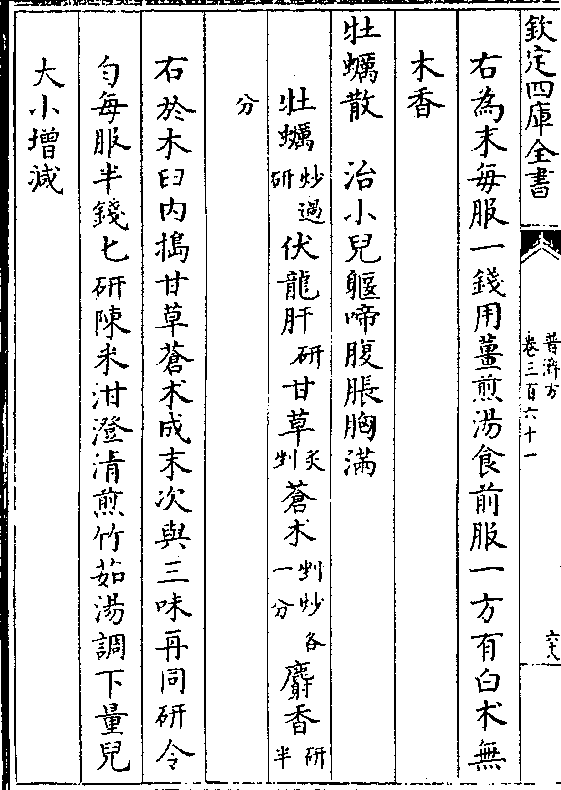 欽定四庫全書
普濟方
卷三百六十一
六十八
右為末每服一錢用薑煎湯食前服一方有白朮無
木香
牡蠣散　治小兒軀啼腹脹胸滿
牡蠣炒過研伏龍肝研甘草炙剉蒼朮剉炒各一分麝香研半
分
右於木臼內搗甘草蒼朮成末次與三味再同研令
勻每服半錢匕研陳米泔澄清煎竹茹湯調下量兒
大小增減